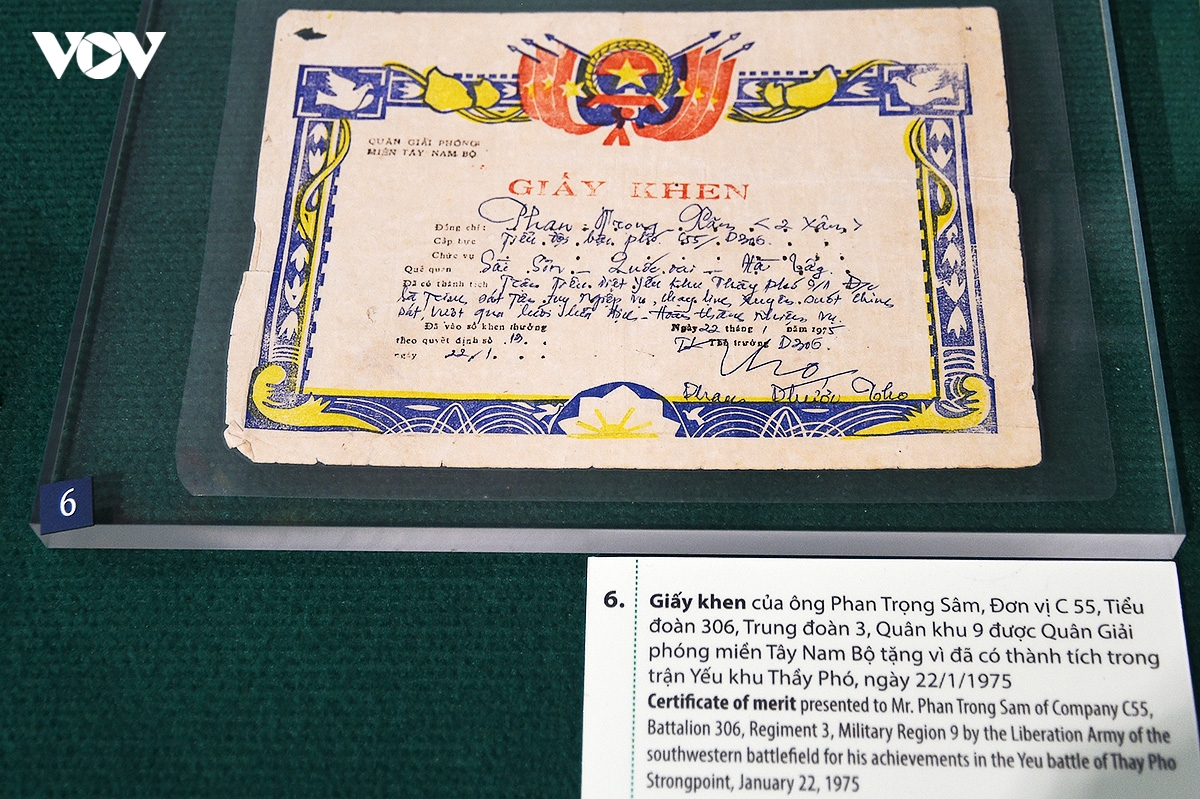 VOV
QUÂN GIẢI PHÓNG
MIỀN TÂY NAM BỘ
GIẤY KHEN
Đồng chí: Phan Trọng
Cấp bực Tiểu đội D306
Chức vụ
Quê quán Sài Sơn - Quốc Oai - Hà Tây
Đã có thành tích
hoàn thành nhiệm vụ
Đã vào sổ khen thưởng
Ngày 22 tháng 1 năm 1975
theo quyết định số
Thủ trưởng D306
ngày 22/1
Tho
Phan Phước Tho
6
6. Giấy khen của ông Phan Trọng Sâm, Đơn vị C 55, Tiểu
đoàn 306, Trung đoàn 3, Quân khu 9 được Quân Giải
phóng miền Tây Nam Bộ tặng vì đã có thành tích trong
trận Yếu khu Thầy Phó, ngày 22/1/1975
Certificate of merit presented to Mr. Phan Trong Sam of Company C55,
Battalion 306, Regiment 3, Military Region 9 by the Liberation Army of the
southwestern battlefield for his achievements in the Yeu battle of Thay Pho
Strongpoint, January 22, 1975